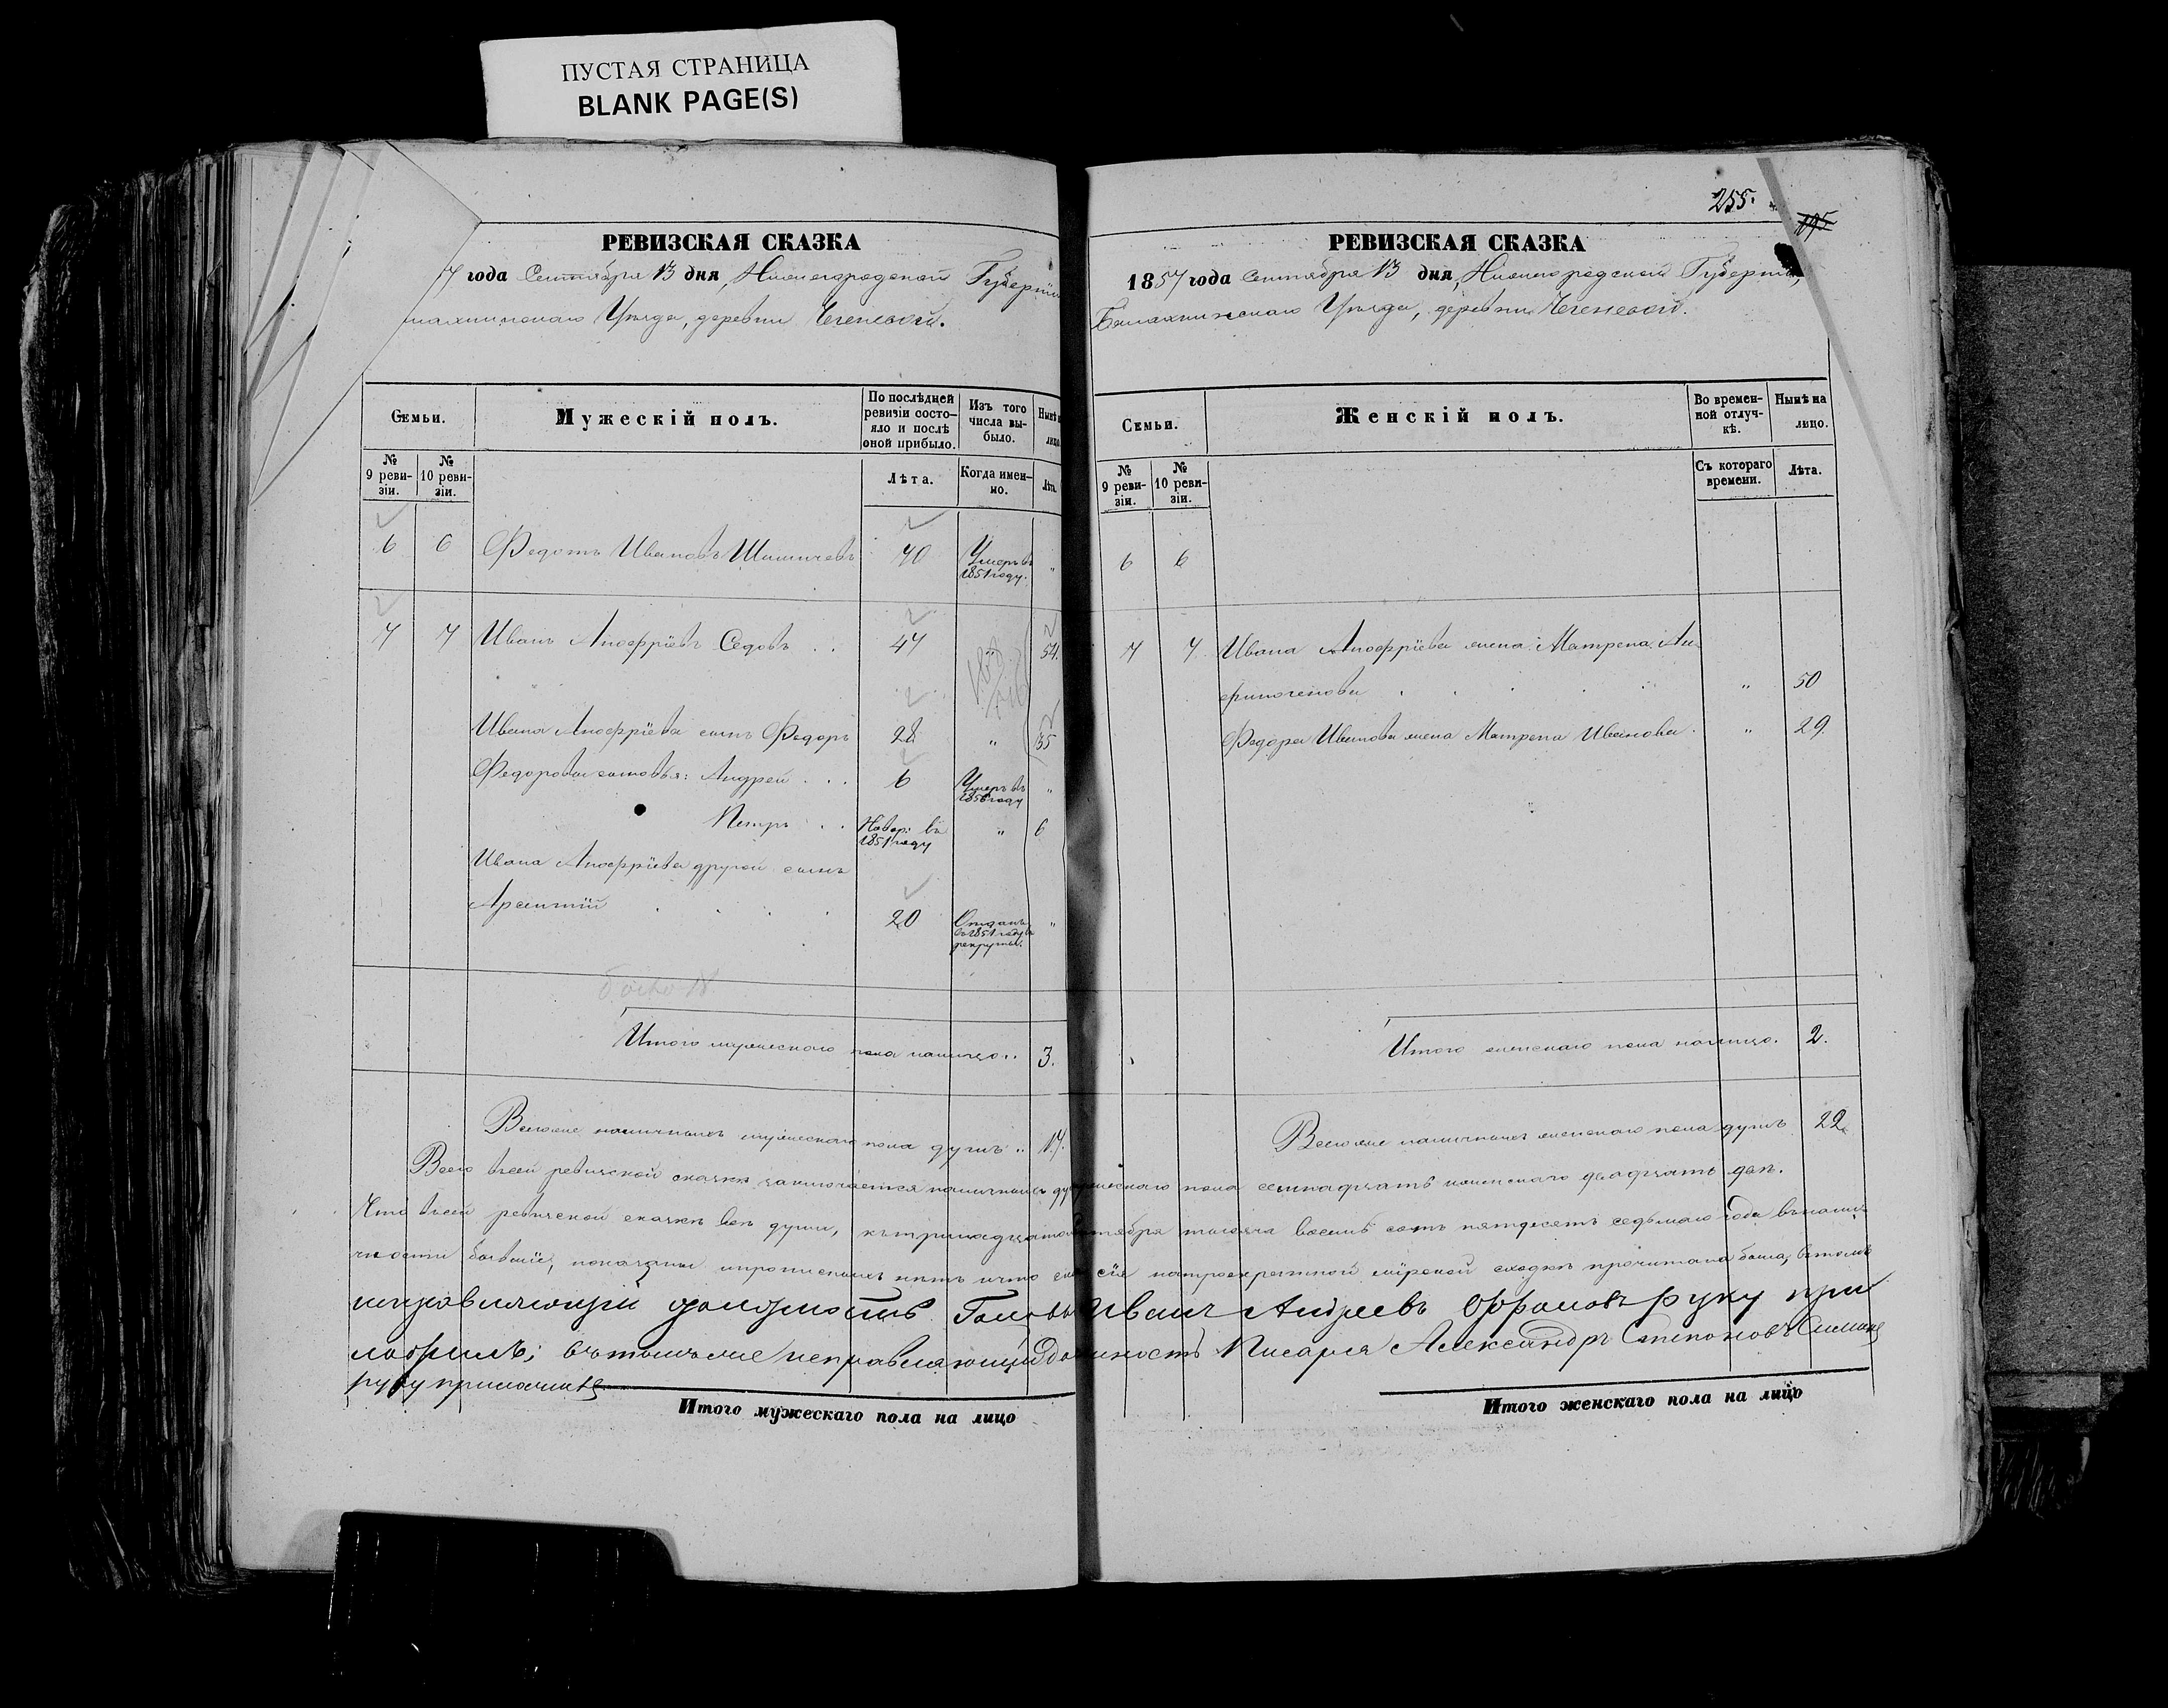 ПУСТАЯ СТРАНИЦА
BLANK PAGE(S)
РЕВИЗСКАЯ СКАЗКА
7 года Сентября 13 дня, Нижегородской Губерніи
лахнинскаго Уѣзда, деревни
Семьи.
Мужескій полъ.
По послѣдней ревизіи состо-
яло и послѣ оной прибыло.
Изъ того числа вы-
было.
Нынѣ
лицо
№ 9 реви-
зіи.
№ 10 реви-
зіи.
Лѣта.
Когда имен-
но.
Лѣта.
6 6 Федотъ Ивановъ 40 Умеръ въ 1851 году. "
7 7 Иванъ Ануфріевъ Седовъ . . 47 " 54.
Ивана Ануфріева сынъ Федоръ 28 " 35
Федоровы сыновья: Андрей . . . 6 Умеръ въ 1856 году "
Петръ . . Новор: въ 1851 году " 6
Ивана Ануфріева другой сынъ
Арсентій . . . . 20 Отданъ въ 1851 году въ рекруты. "
Итого мужескаго пола налицо.. 3.
Всего же наличныхъ мужескаго пола душъ .. 17.
255.
195
РЕВИЗСКАЯ СКАЗКА
1857 года Сентября 13 дня, Нижегородской Губерніи,
Балахнинскаго Уѣзда, деревни
Семьи.
Женскій полъ.
Во времен-
ной отлуч-
кѣ.
Нынѣ на
лицо.
№ 9 реви-
зіи.
№ 10 реви-
зіи.
Съ котораго
времени.
Лѣта.
6 6
7 7 Ивана Ануфріева жена Матрена Ан-
финогенова . . . . . " 50
Федора Иванова жена Матрена Иванова . " 29.
Итого женскаго пола налицо. 2.
Всего же наличныхъ женскаго пола душъ 22.
Всего въ сей ревизской сказкѣ заключается наличныхъ мужескаго пола семнадцать и женскаго двадцать двѣ.
Что въ сей ревизской сказкѣ всѣ души, къ тринадцатому Сентября тысяча восемь сотъ пятдесятъ седьмаго года въ налич-
ности бывшіе, показаны и прописныхъ нѣтъ и что сіе на троекратной мірской сходкѣ прочитана была, въ томъ
исправляющій должность Головы Иванъ Андреевъ руку при
ложилъ; въ томъ же исправляющій должность Писаря Александръ Степановъ
руку приложилъ
Итого мужескаго пола на лицо
Итого женскаго пола на лицо